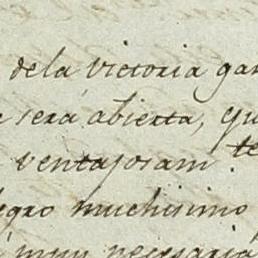 dela victoria gan
será abierta, qu
ventajosam.te
egro muchisimo
muy necesaria